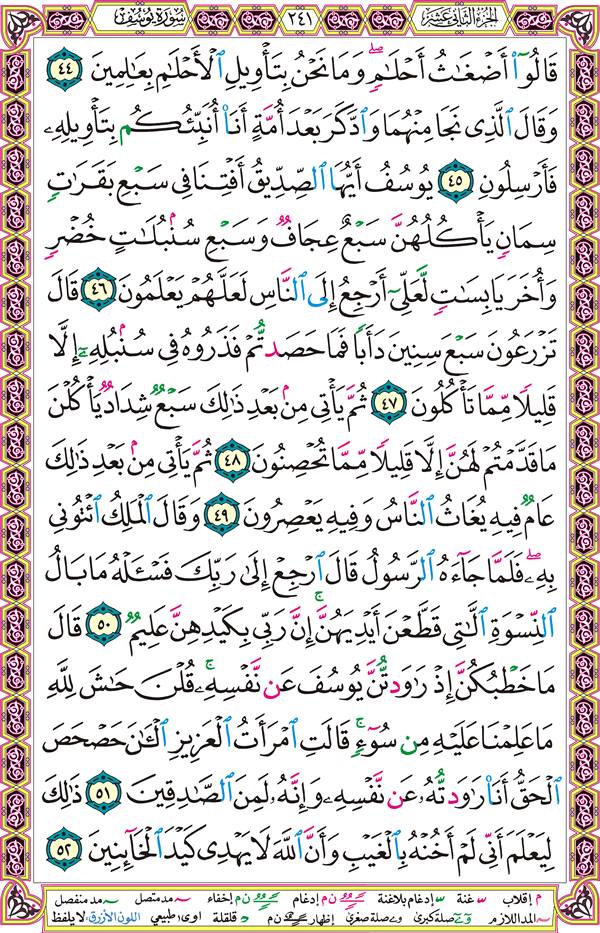 الجزء الثاني عشر ٢٤١ سورة يوسف
قَالُوٓاْ أَضۡغَٰثُ أَحۡلَٰمٖۖ وَمَا نَحۡنُ بِتَأۡوِيلِ ٱلۡأَحۡلَٰمِ بِعَٰلِمِينَ ٤٤
وَقَالَ ٱلَّذِي نَجَا مِنۡهُمَا وَٱدَّكَرَ بَعۡدَ أُمَّةٍ أَنَا۠ أُنَبِّئُكُم بِتَأۡوِيلِهِۦ
فَأَرۡسِلُونِ ٤٥ يُوسُفُ أَيُّهَا ٱلصِّدِّيقُ أَفۡتِنَا فِي سَبۡعِ بَقَرَٰتٖ
سِمَانٖ يَأۡكُلُهُنَّ سَبۡعٌ عِجَافٞ وَسَبۡعِ سُنۢبُلَٰتٍ خُضۡرٖ
وَأُخَرَ يَابِسَٰتٖ لَّعَلِّيٓ أَرۡجِعُ إِلَى ٱلنَّاسِ لَعَلَّهُمۡ يَعۡلَمُونَ ٤٦ قَالَ
تَزۡرَعُونَ سَبۡعَ سِنِينَ دَأَبٗا فَمَا حَصَدتُّمۡ فَذَرُوهُ فِي سُنۢبُلِهِۦٓ إِلَّا
قَلِيلٗا مِّمَّا تَأۡكُلُونَ ٤٧ ثُمَّ يَأۡتِي مِنۢ بَعۡدِ ذَٰلِكَ سَبۡعٞ شِدَادٞ يَأۡكُلۡنَ
مَا قَدَّمۡتُمۡ لَهُنَّ إِلَّا قَلِيلٗا مِّمَّا تُحۡصِنُونَ ٤٨ ثُمَّ يَأۡتِي مِنۢ بَعۡدِ ذَٰلِكَ
عَامٞ فِيهِ يُغَاثُ ٱلنَّاسُ وَفِيهِ يَعۡصِرُونَ ٤٩ وَقَالَ ٱلۡمَلِكُ ٱئۡتُونِي
بِهِۦۖ فَلَمَّا جَآءَهُ ٱلرَّسُولُ قَالَ ٱرۡجِعۡ إِلَىٰ رَبِّكَ فَسۡـَٔلۡهُ مَا بَالُ
ٱلنِّسۡوَةِ ٱلَّٰتِي قَطَّعۡنَ أَيۡدِيَهُنَّۚ إِنَّ رَبِّي بِكَيۡدِهِنَّ عَلِيمٞ ٥٠ قَالَ
مَا خَطۡبُكُنَّ إِذۡ رَٰوَدتُّنَّ يُوسُفَ عَن نَّفۡسِهِۦۚ قُلۡنَ حَٰشَ لِلَّهِ
مَا عَلِمۡنَا عَلَيۡهِ مِن سُوٓءٖۚ قَالَتِ ٱمۡرَأَتُ ٱلۡعَزِيزِ ٱلۡـَٰٔنَ حَصۡحَصَ
ٱلۡحَقُّ أَنَا۠ رَٰوَدتُّهُۥ عَن نَّفۡسِهِۦ وَإِنَّهُۥ لَمِنَ ٱلصَّٰدِقِينَ ٥١ ذَٰلِكَ
لِيَعۡلَمَ أَنِّي لَمۡ أَخُنۡهُ بِٱلۡغَيۡبِ وَأَنَّ ٱللَّهَ لَا يَهۡدِي كَيۡدَ ٱلۡخَآئِنِينَ ٥٢
م إقلاب غنة إدغام بلاغنة ن م إدغام ن م إخفاء مد متصل مد منفصل
المد اللازم صلة كبرى صلة صغرى إظهار ن م قلقلة اوى طبيعي اللون الأزرق لا يلفظ